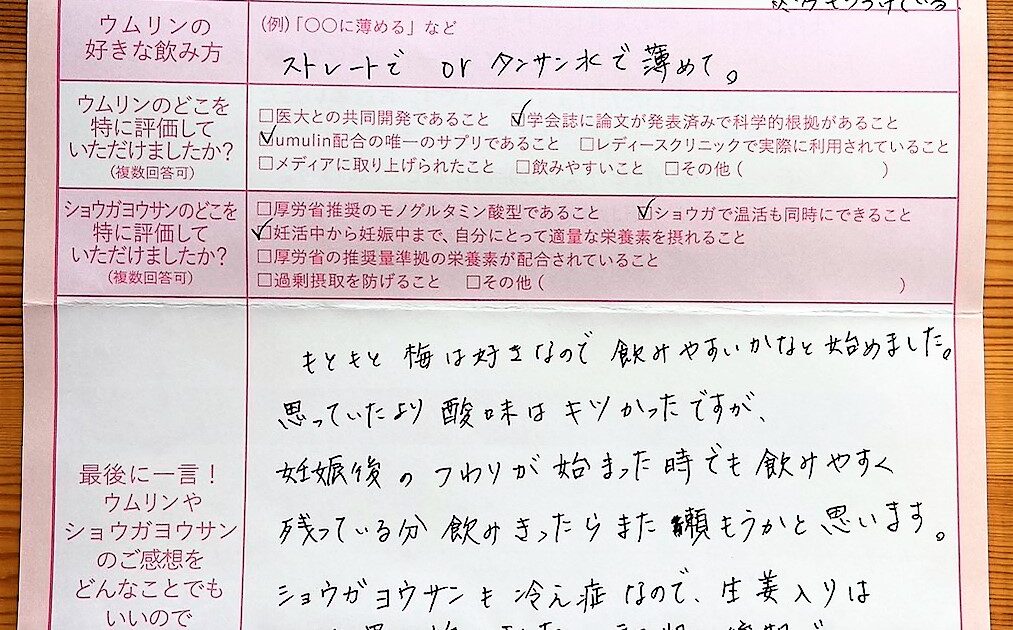 ウムリンの
好きな飲み方
(例)「〇〇に薄める」など
ストレートで or タンサン水で薄めて。
ウムリンのどこを
特に評価して
いただけましたか?
(複数回答可)
□医大との共同開発であること ☑学会誌に論文が発表済みで科学的根拠があること
☑umulin配合の唯一のサプリであること □レディースクリニックで実際に利用されていること
□メディアに取り上げられたこと □飲みやすいこと □その他( )
ショウガヨウサンのどこを
特に評価して
いただけましたか?
(複数回答可)
□厚労省推奨のモノグルタミン酸型であること ☑ショウガで温活も同時にできること
☑妊活中から妊娠中まで、自分にとって適量な栄養素を摂れること
□厚労省の推奨量準拠の栄養素が配合されていること
□過剰摂取を防げること □その他( )
最後に一言!
ウムリンや
ショウガヨウサン
のご感想を
どんなことでも
いいので
もともと梅は好きなので飲みやすいかなと始めました。
思っていたより酸味はキツかったですが、
妊娠後のつわりが始まった時でも飲みやすく
残っている分飲みきったらまた頼もうかと思います。
ショウガヨウサンも冷え症なので、生姜入りは